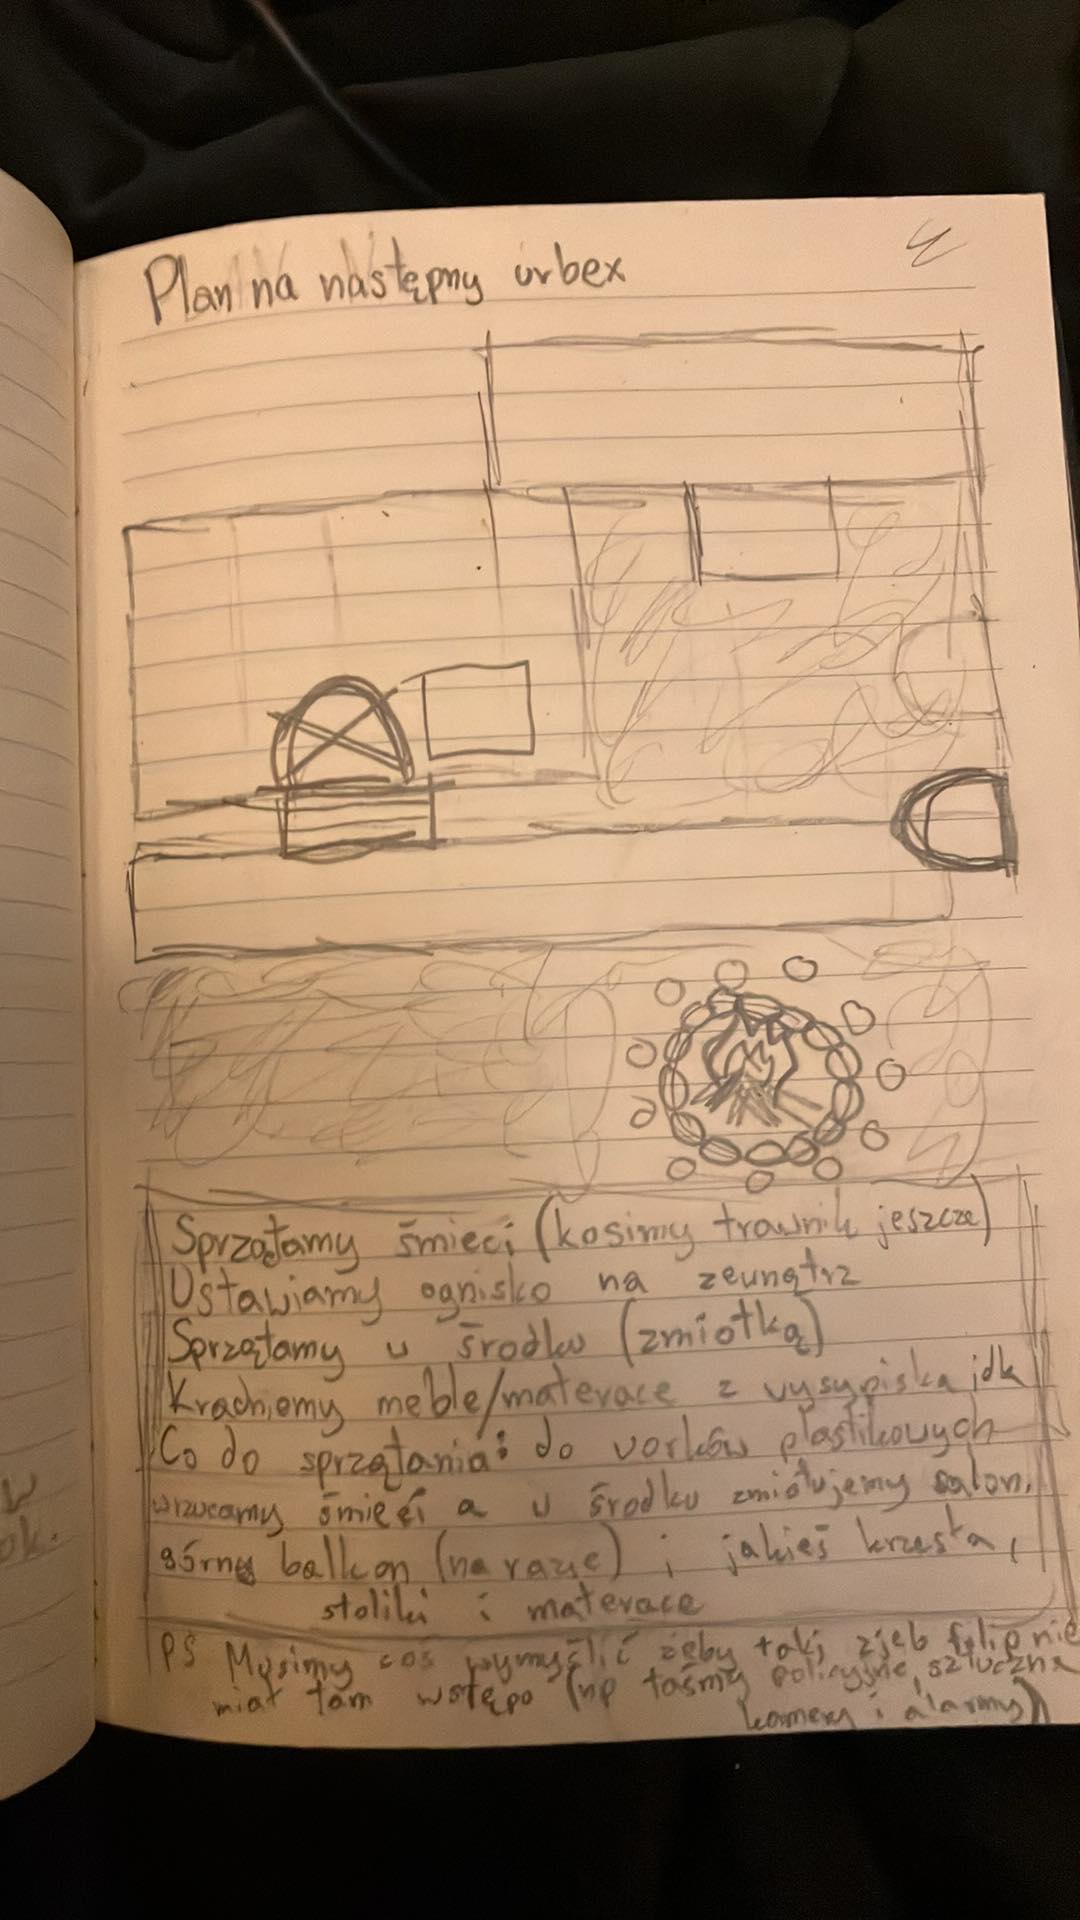 Plan na następny urbex
Sprzątamy śmieci (kosimy trawnik jeszcze)
Ustawiamy ognisko na zeunątrz
Sprzątamy w środku (zmiotką)
Kradniemy meble/materace z wysypiska idk
Co do sprzątania: do worków plastikowych
wrzucamy śmieci a w środku zmiotujemy salon,
górny balkon (na razie) i jakieś krzesła,
stoliki i materace
PS Musimy coś wymyślić żeby taki zjeb filip nie
miał tam wstępo (np taśmy policyjne, sztuczne
kamery i alarmy)
w
ok.